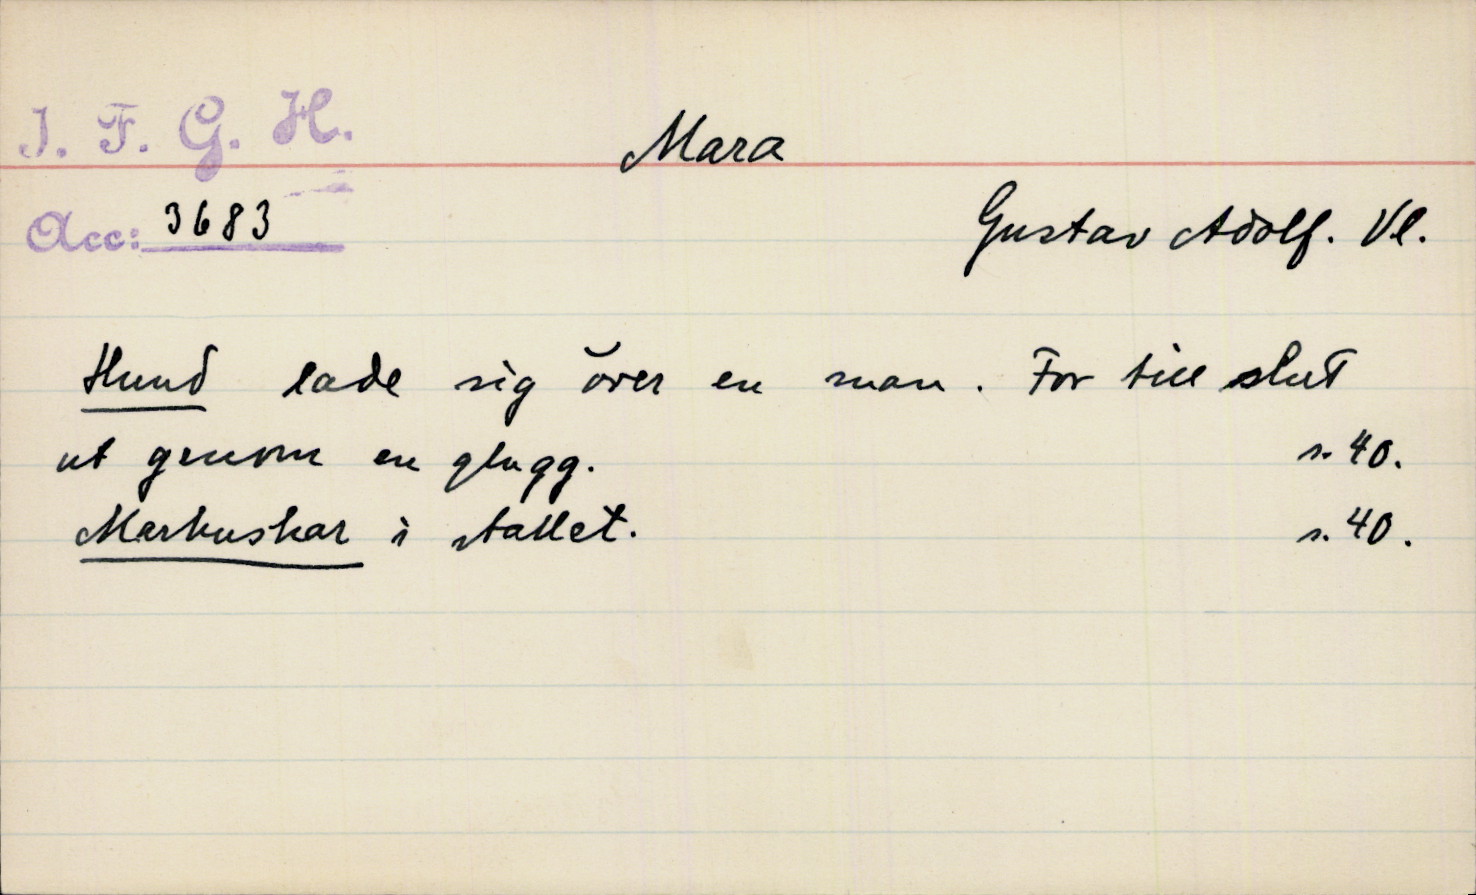 I. F. G. H.
Mara
Acc: 3683
Gustav Adolf. Vl.
Hund lade sig över en man. For till slut
ut genom en glugg. s. 40.
Markuskar i stallet. s. 40.